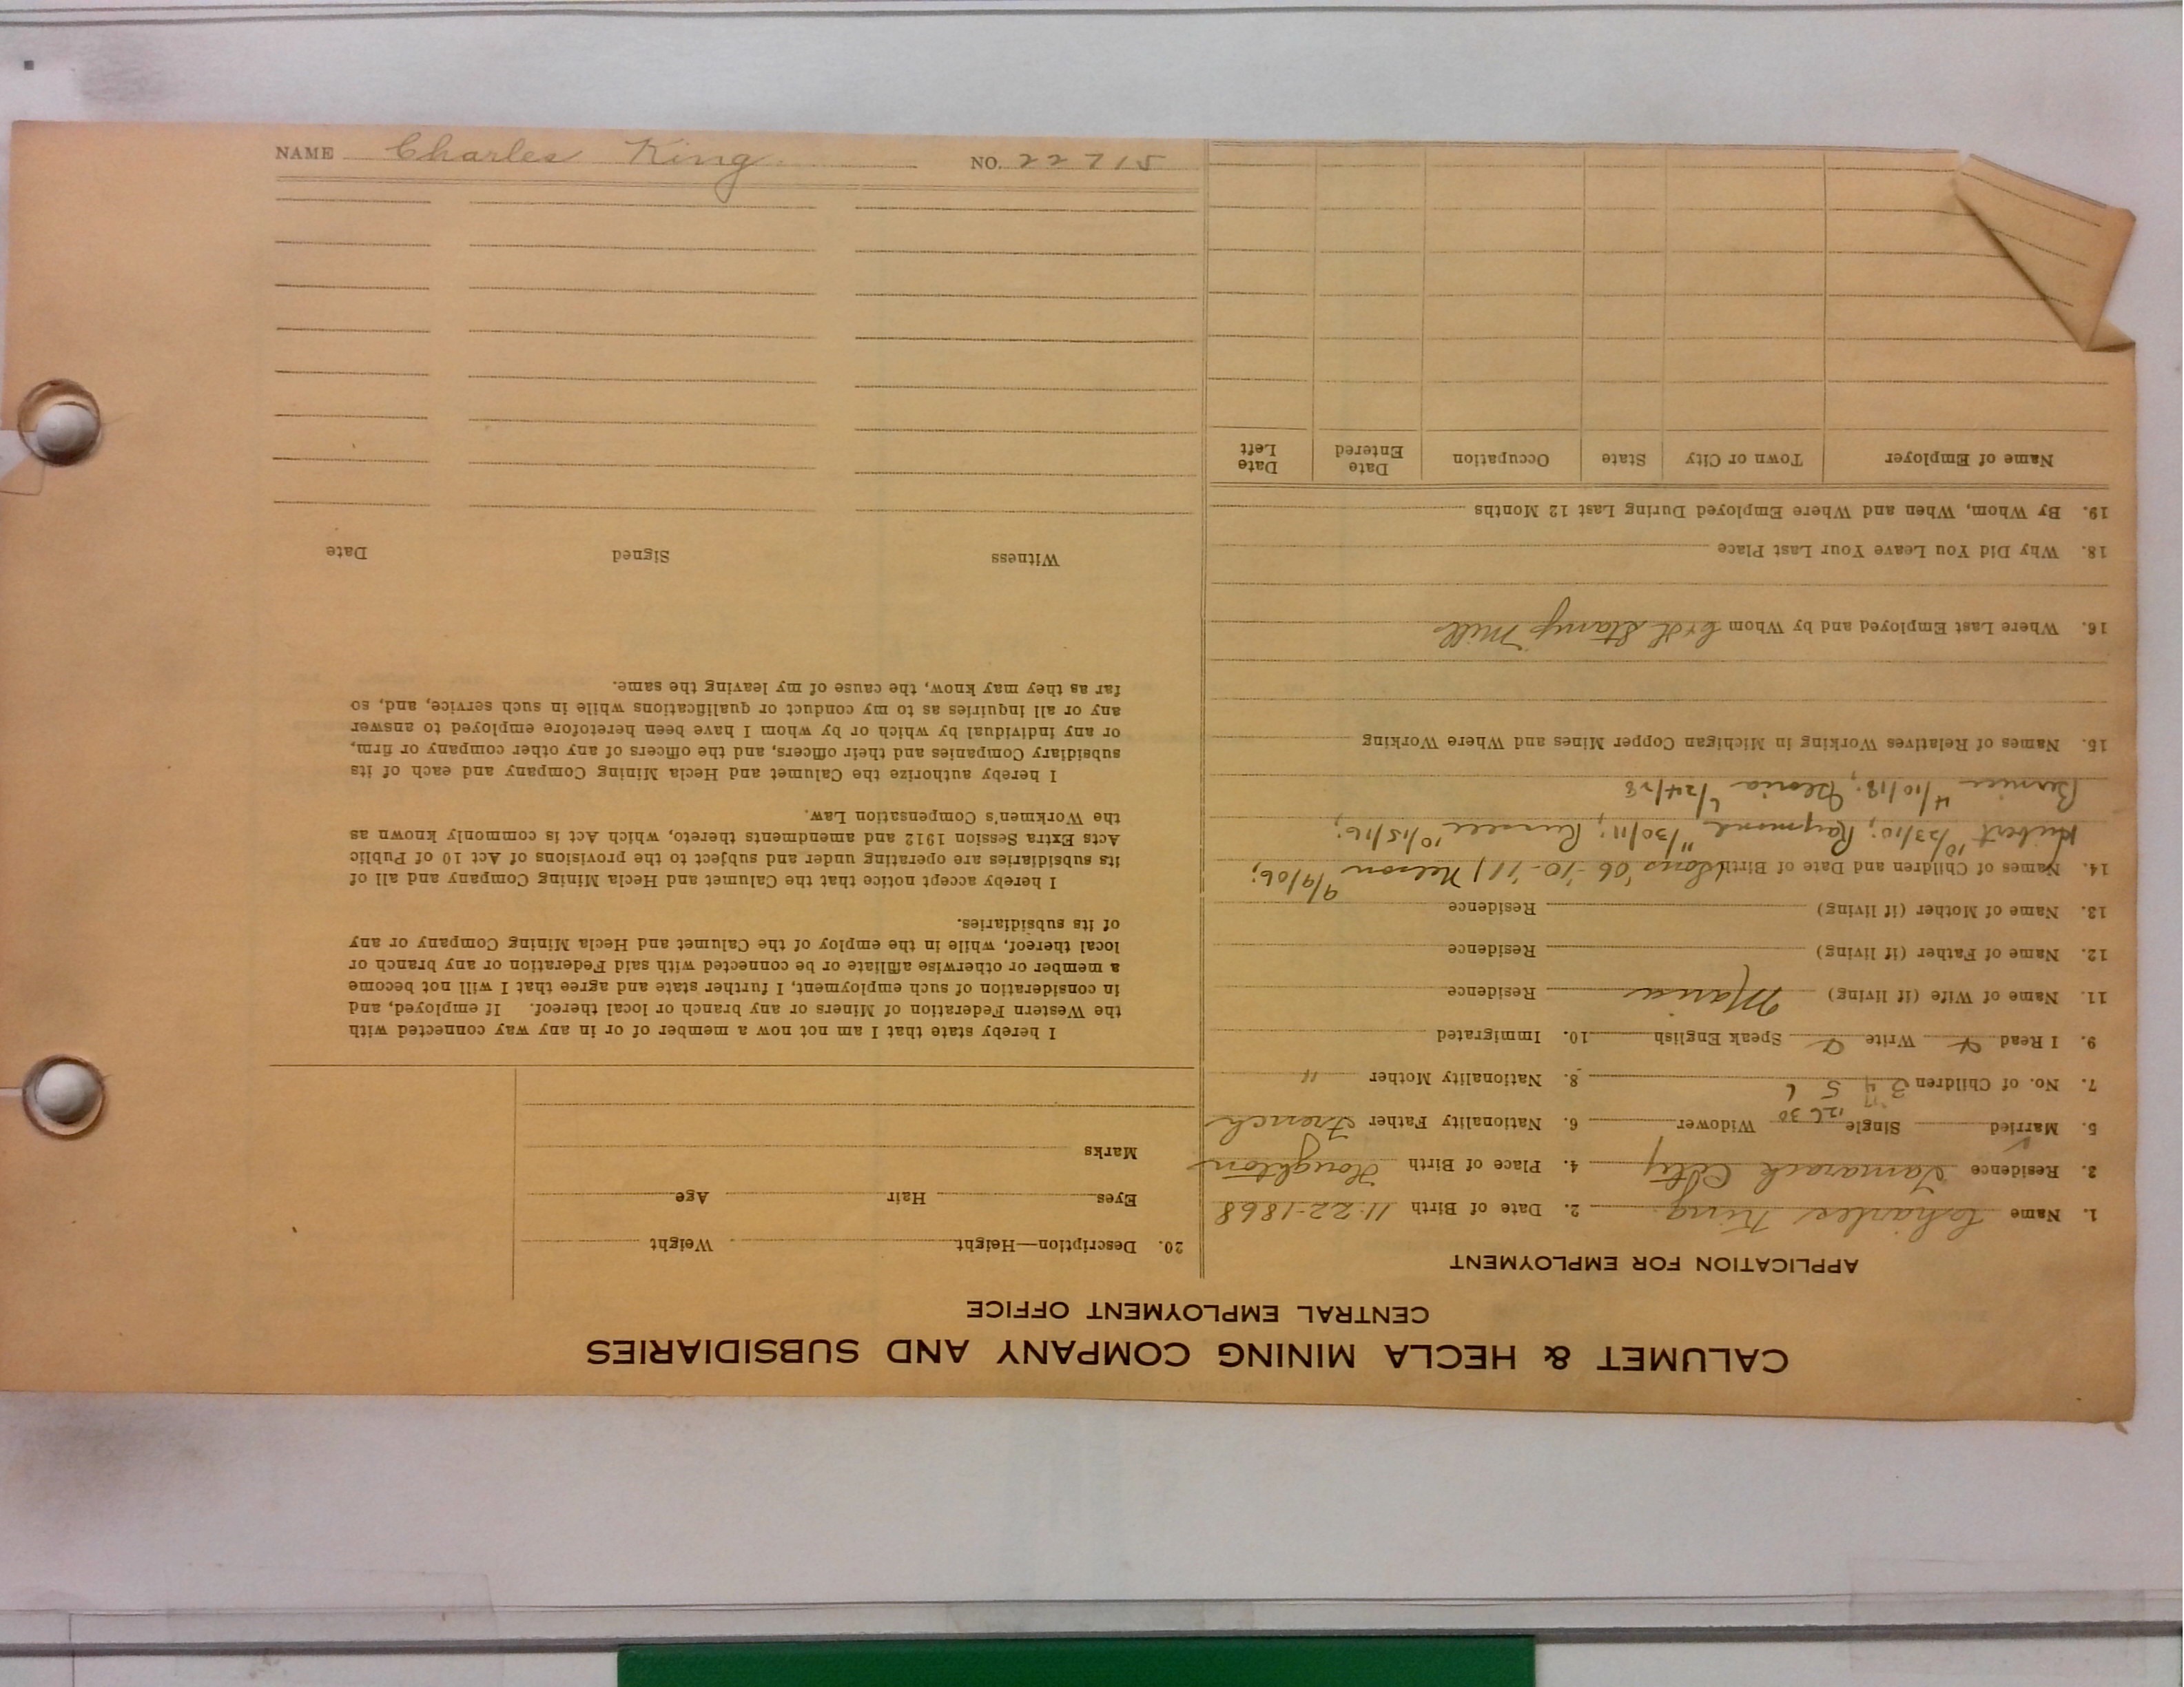 CALUMET & HECLA MINING COMPANY AND SUBSIDIARIES
CENTRAL EMPLOYMENT OFFICE
APPLICATION FOR EMPLOYMENT
1. Name Charles King 2. Date of Birth 11-22-1868
3. Residence Tamarack City 4. Place of Birth Houghton
5. Married Single Widower 6. Nationality Father French
7. No. of Children 3 4 5 6 8. Nationality Mother "
9. I Read Write Speak English 10. Immigrated
11. Name of Wife (if living) Residence
12. Name of Father (if living) Residence
13. Name of Mother (if living) Residence
14. Names of Children and Date of Birth (Sons '06-'10-'11) Nelson 9/9/06;
Hubert 10/23/10; Raymond 11/30/11; Russell 10/15/16;
Bernice 4/10/18; Gloria 6/24/28
15. Names of Relatives Working in Michigan Copper Mines and Where Working
16. Where Last Employed and by Whom C&H Stamp Mill
18. Why Did You Leave Your Last Place
19. By Whom, When and Where Employed During Last 12 Months
Name of Employer Town or City State Occupation Date Entered Date Left
20. Description—Height Weight
Eyes Hair Age
Marks
I hereby state that I am not now a member of or in any way connected with
the Western Federation of Miners or any branch or local thereof. If employed, and
in consideration of such employment, I further state and agree that I will not become
a member or otherwise affiliate or be connected with said Federation or any branch or
local thereof, while in the employ of the Calumet and Hecla Mining Company or any
of its subsidiaries.
I hereby accept notice that the Calumet and Hecla Mining Company and all of
its subsidiaries are operating under and subject to the provisions of Act 10 of Public
Acts Extra Session 1912 and amendments thereto, which Act is commonly known as
the Workmen's Compensation Law.
I hereby authorize the Calumet and Hecla Mining Company and each of its
subsidiary Companies and their officers, and the officers of any other company or firm,
or any individual by which or by whom I have been heretofore employed to answer
any or all inquiries as to my conduct or qualifications while in such service, and, so
far as they may know, the cause of my leaving the same.
Witness Signed Date
NAME Charles King NO. 22715